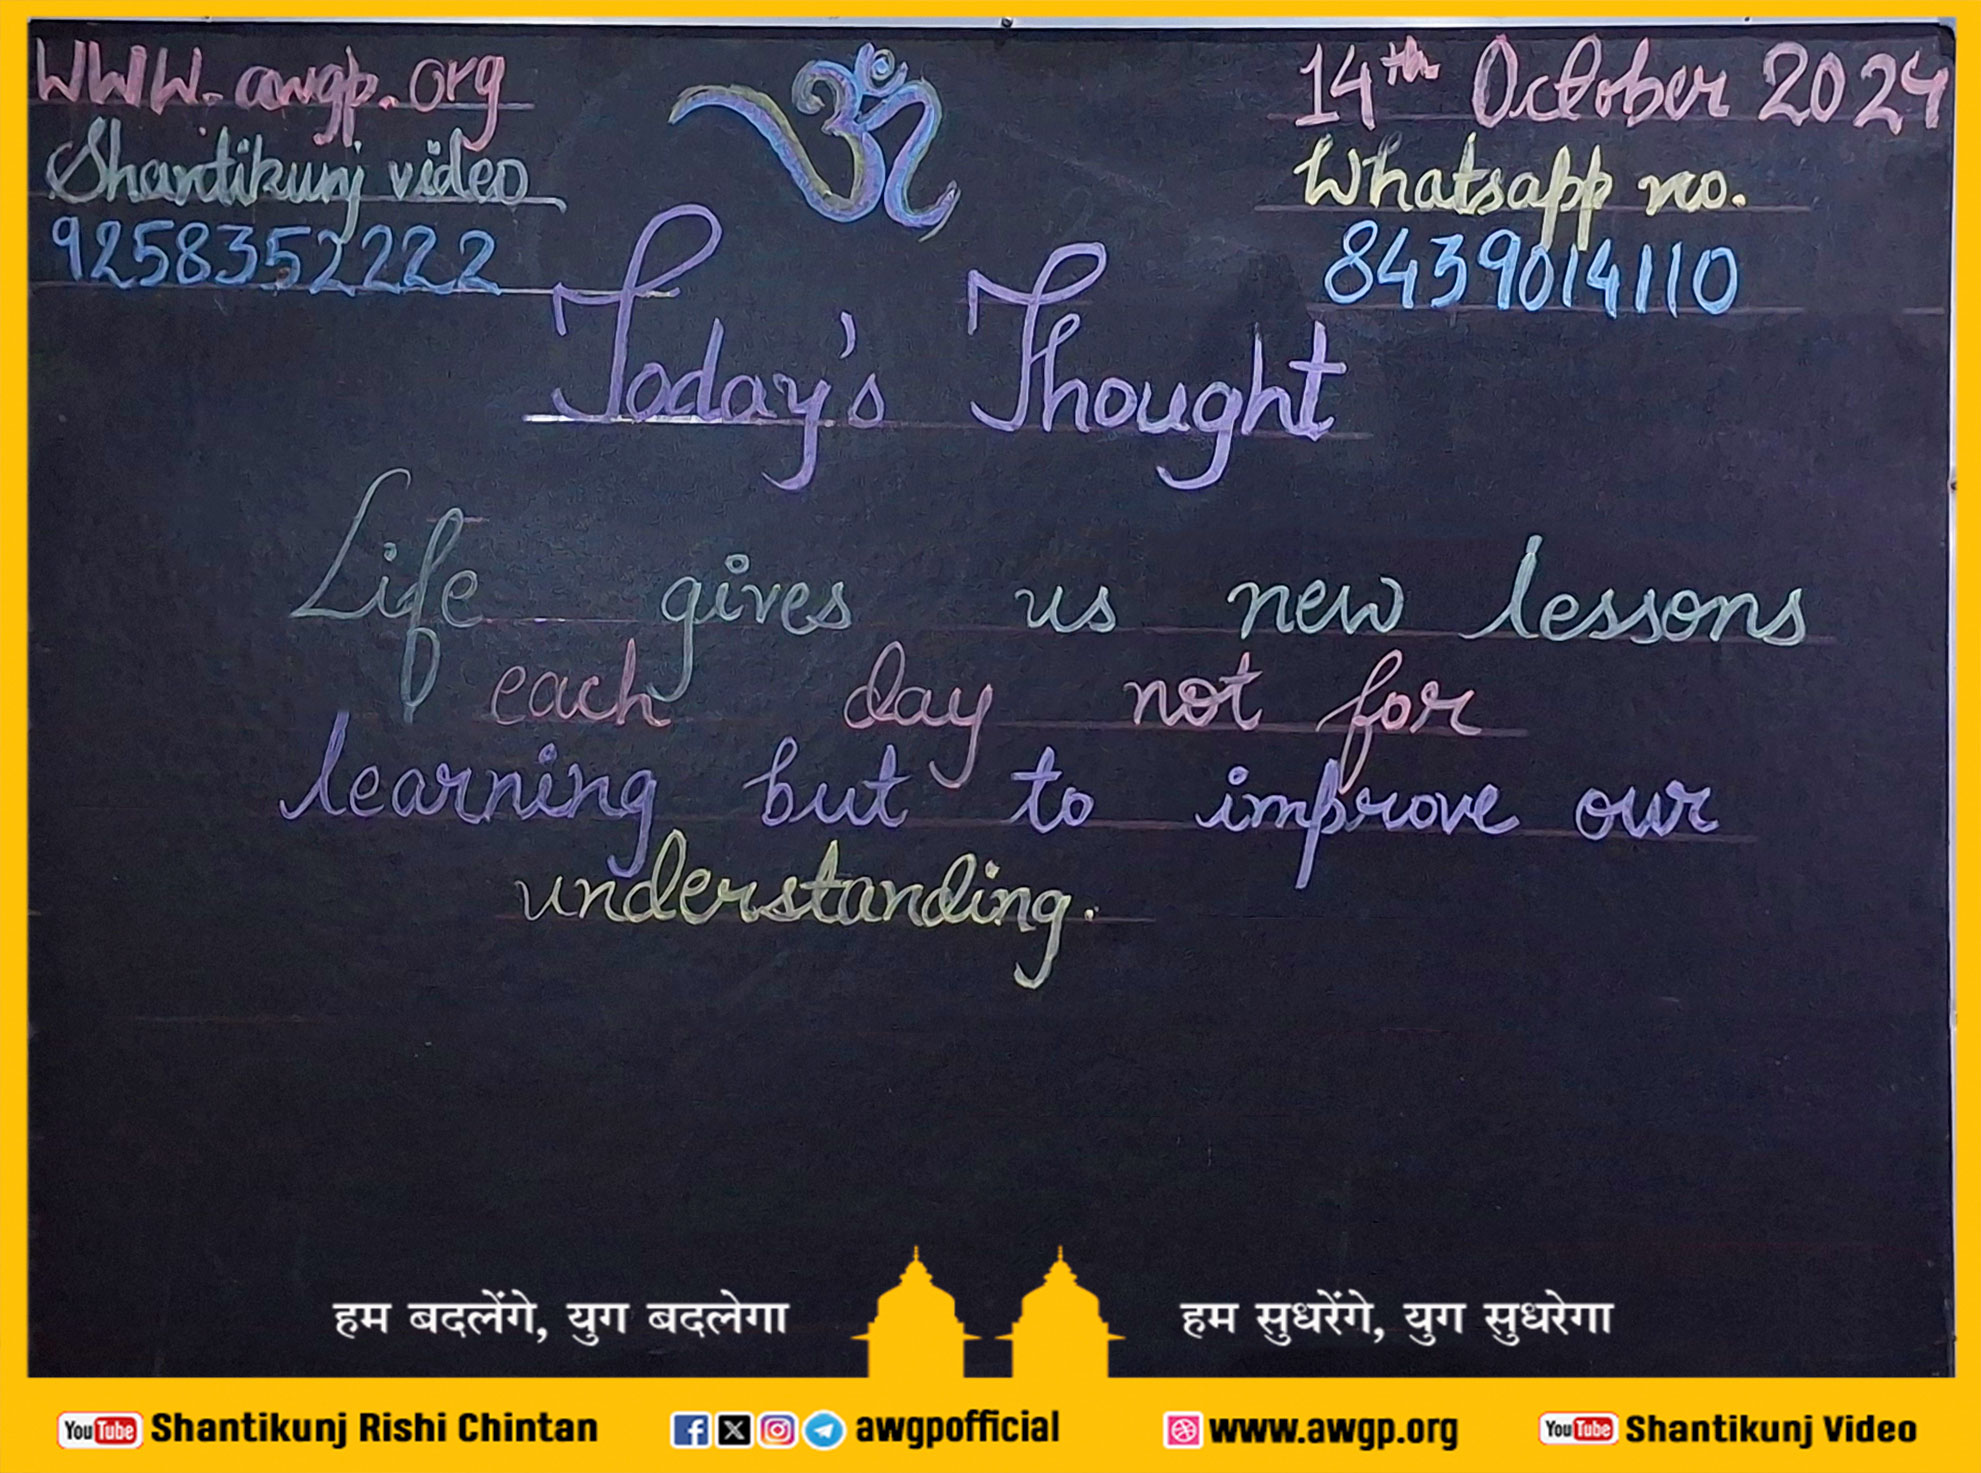 www.awgp.org
Shantikunj video
9258352222
ॐ
14th October 2024
Whatsapp no.
8439014110
Today's Thought
Life gives us new lessons
each day not for
learning but to improve our
understanding.
हम बदलेंगे, युग बदलेगा
हम सुधरेंगे, युग सुधरेगा
YouTube Shantikunj Rishi Chintan
awgpofficial
www.awgp.org
YouTube Shantikunj Video